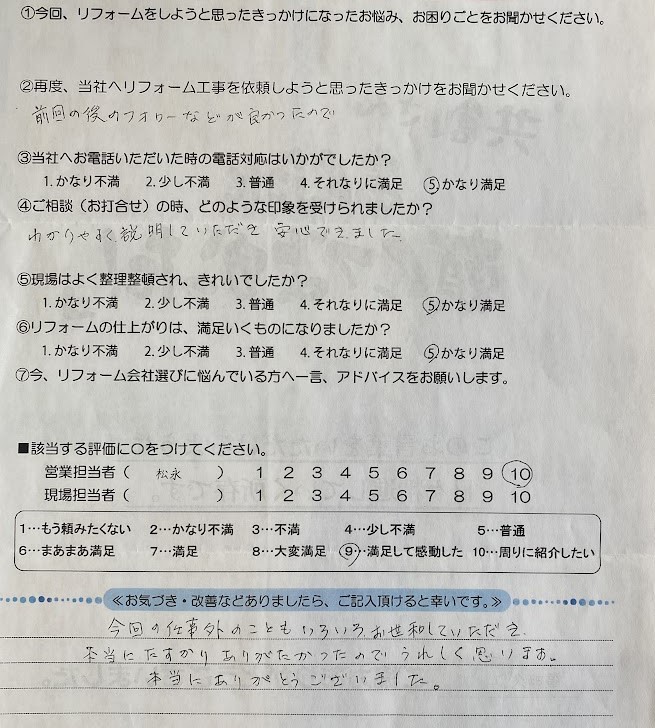 ①今回、リフォームをしようと思ったきっかけになったお悩み、お困りごとをお聞かせください。
②再度、当社へリフォーム工事を依頼しようと思ったきっかけをお聞かせください。
前回の後のフォローなどが良かったので
③当社へお電話いただいた時の電話対応はいかがでしたか？
1.かなり不満 2.少し不満 3.普通 4.それなりに満足 5.かなり満足
④ご相談（お打合せ）の時、どのような印象を受けられましたか？
わかりやすく説明していただき 安心できました。
⑤現場はよく整理整頓され、きれいでしたか？
1.かなり不満 2.少し不満 3.普通 4.それなりに満足 5.かなり満足
⑥リフォームの仕上がりは、満足いくものになりましたか？
1.かなり不満 2.少し不満 3.普通 4.それなりに満足 5.かなり満足
⑦今、リフォーム会社選びに悩んでいる方へ一言、アドバイスをお願いします。
■該当する評価に〇をつけてください。
営業担当者（ 松永 ） 1 2 3 4 5 6 7 8 9 10
現場担当者（ ） 1 2 3 4 5 6 7 8 9 10
1…もう頼みたくない 2…かなり不満 3…不満 4…少し不満 5…普通
6…まあまあ満足 7…満足 8…大変満足 9…満足して感動した 10…周りに紹介したい
≪お気づき・改善などありましたら、ご記入頂けると幸いです。≫
今回の仕事外のこともいろいろお世和していただき
本当にたすかりありがたかったのでうれしく思います。
本当にありがとうございました。